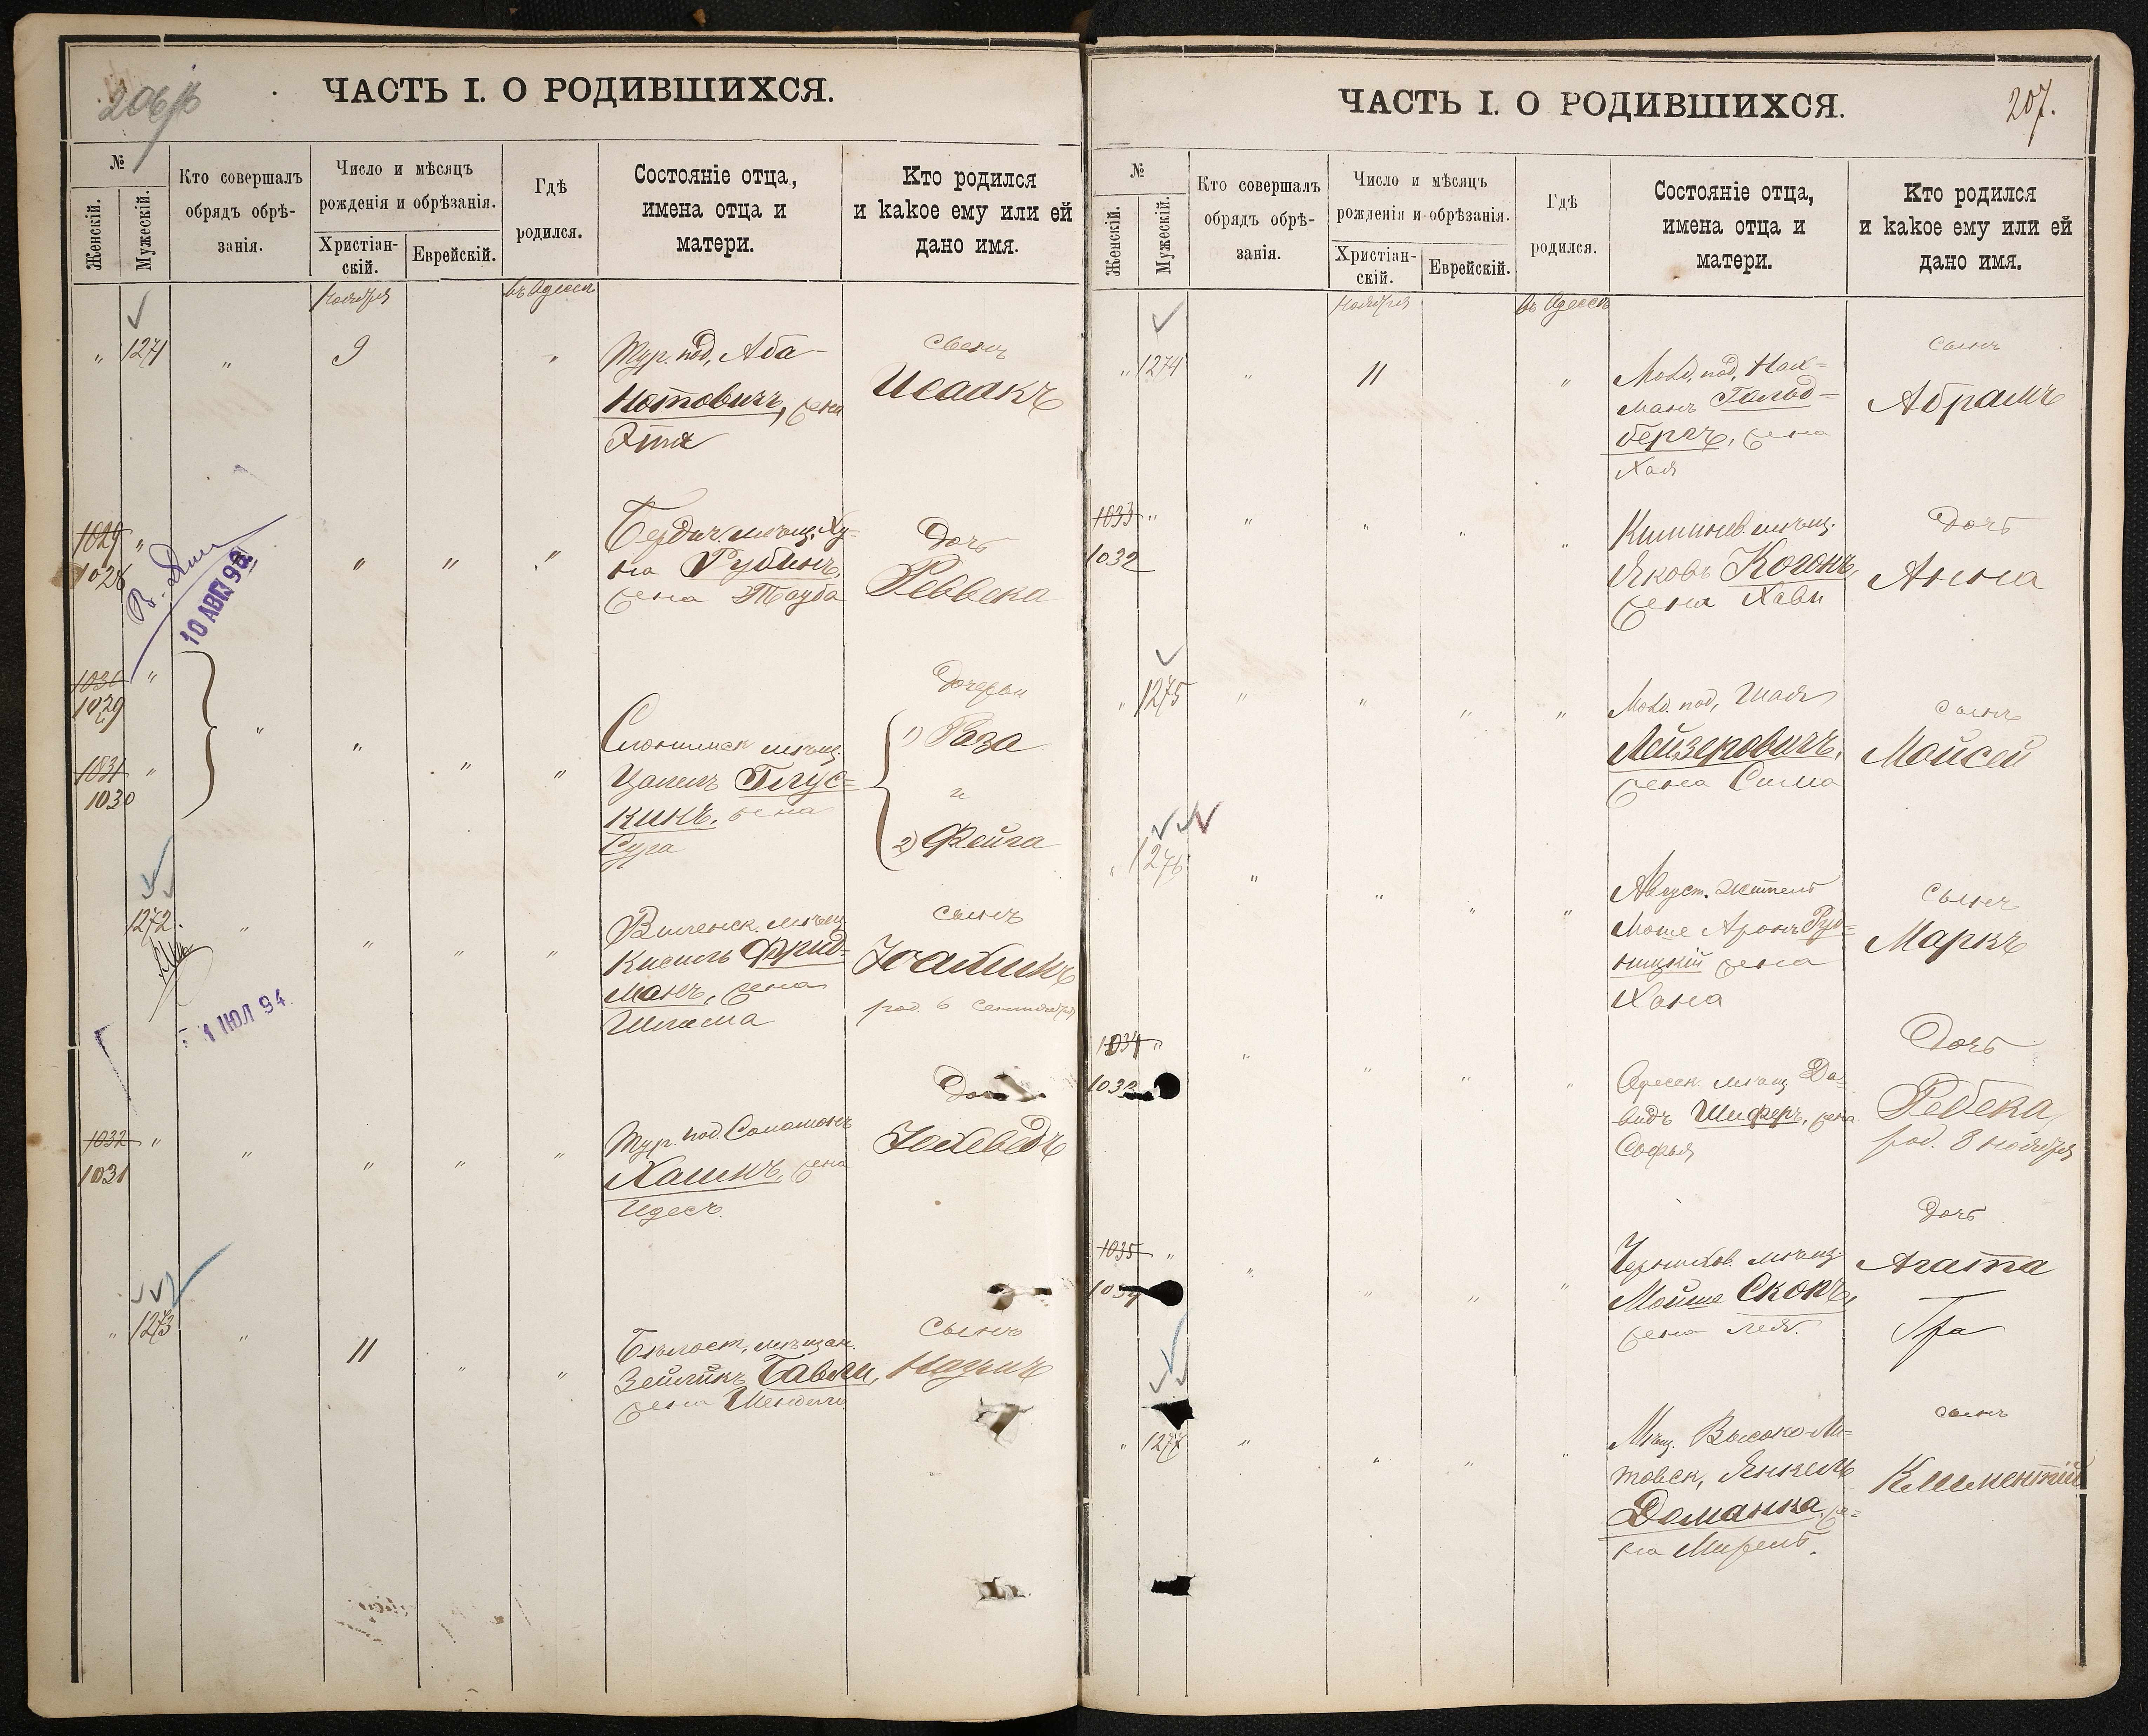 206
ЧАСТЬ I. О РОДИВШИХСЯ.
№
Женскій.
Мужескій.
Кто совершалъ
обрядъ обрѣ-
занія.
Число и мѣсяцъ
рожденія и обрѣзанія.
Христіан-
скій.
Еврейскій.
Гдѣ
родился.
Состояніе отца,
имена отца и
матери.
Кто родился
и какое ему или ей
дано имя.
Ноября
въ Одессѣ
" 1271 " 9 "
Тур. под. Аба
Нотовичъ, жена
Этя
сынъ
Исаакъ
1029 "
1028 " " "
10 АВГ 98
Бердич. мѣщ. Ху-
на Рубинъ,
жена Тауба
Дочь
Реввека
1030 "
1029
1031 "
1030
" " " "
Слонимск мѣщ.
Цалелъ Глус-
кинъ, жена
Сура
Дочери
1) Раза
и
2) Фейга
1272. " " " "
1 ИЮЛ 94
Виленск. мѣщ
Кисиль Фрид-
манъ, жена
Шлема
сынъ
Іоахимъ
род. 6 сентября
1032 "
1031 " " " "
Тур. под. Соломонъ
Хашинъ, жена
Идесъ
Дочь
Іохеведъ
" 1273 " 11 " "
Бѣлост. мѣщан.
Зейликъ Бавли,
жена Шендели
Сынъ
Наумъ
ЧАСТЬ I. О РОДИВШИХСЯ.
207.
№
Женскій.
Мужескій.
Кто совершалъ
обрядъ обрѣ-
занія.
Число и мѣсяцъ
рожденія и обрѣзанія.
Христіан-
скій.
Еврейскій.
Гдѣ
родился.
Состояніе отца,
имена отца и
матери.
Кто родился
и какое ему или ей
дано имя.
Ноября
въ Одессѣ
" 1274 " 11 "
Молд. под. Нах-
манъ Гольд-
бергъ, жена
Хая
сынъ
Абрамъ
1033 "
1032 " " " "
Кишинев. мѣщ.
Яковъ Когонъ,
жена Хави
Дочь
Анна
" 1275 " " " "
Молд. под. Шая
Лейзеровичъ,
жена Сима
сынъ
Мойсей
" 1276 " " " "
Август. житель
Моше Аронъ Руд-
ницкій жена
Хана
сынъ
Маркъ
1034 "
1033 " " " "
Одесск. мѣщ Да-
видъ Шиферъ, жена
Софья
Дочь
Ребека
род. 8 ноября
1035 "
1034 " " " "
Чернихов. мѣщ.
Мойше Скопъ,
жена Лея.
Дочь
Агата
" 1277 " " " "
Мѣщ. Высоко-Ли-
товск. Янкель
Доманка, же-
на Мирель.
сынъ
Климентій